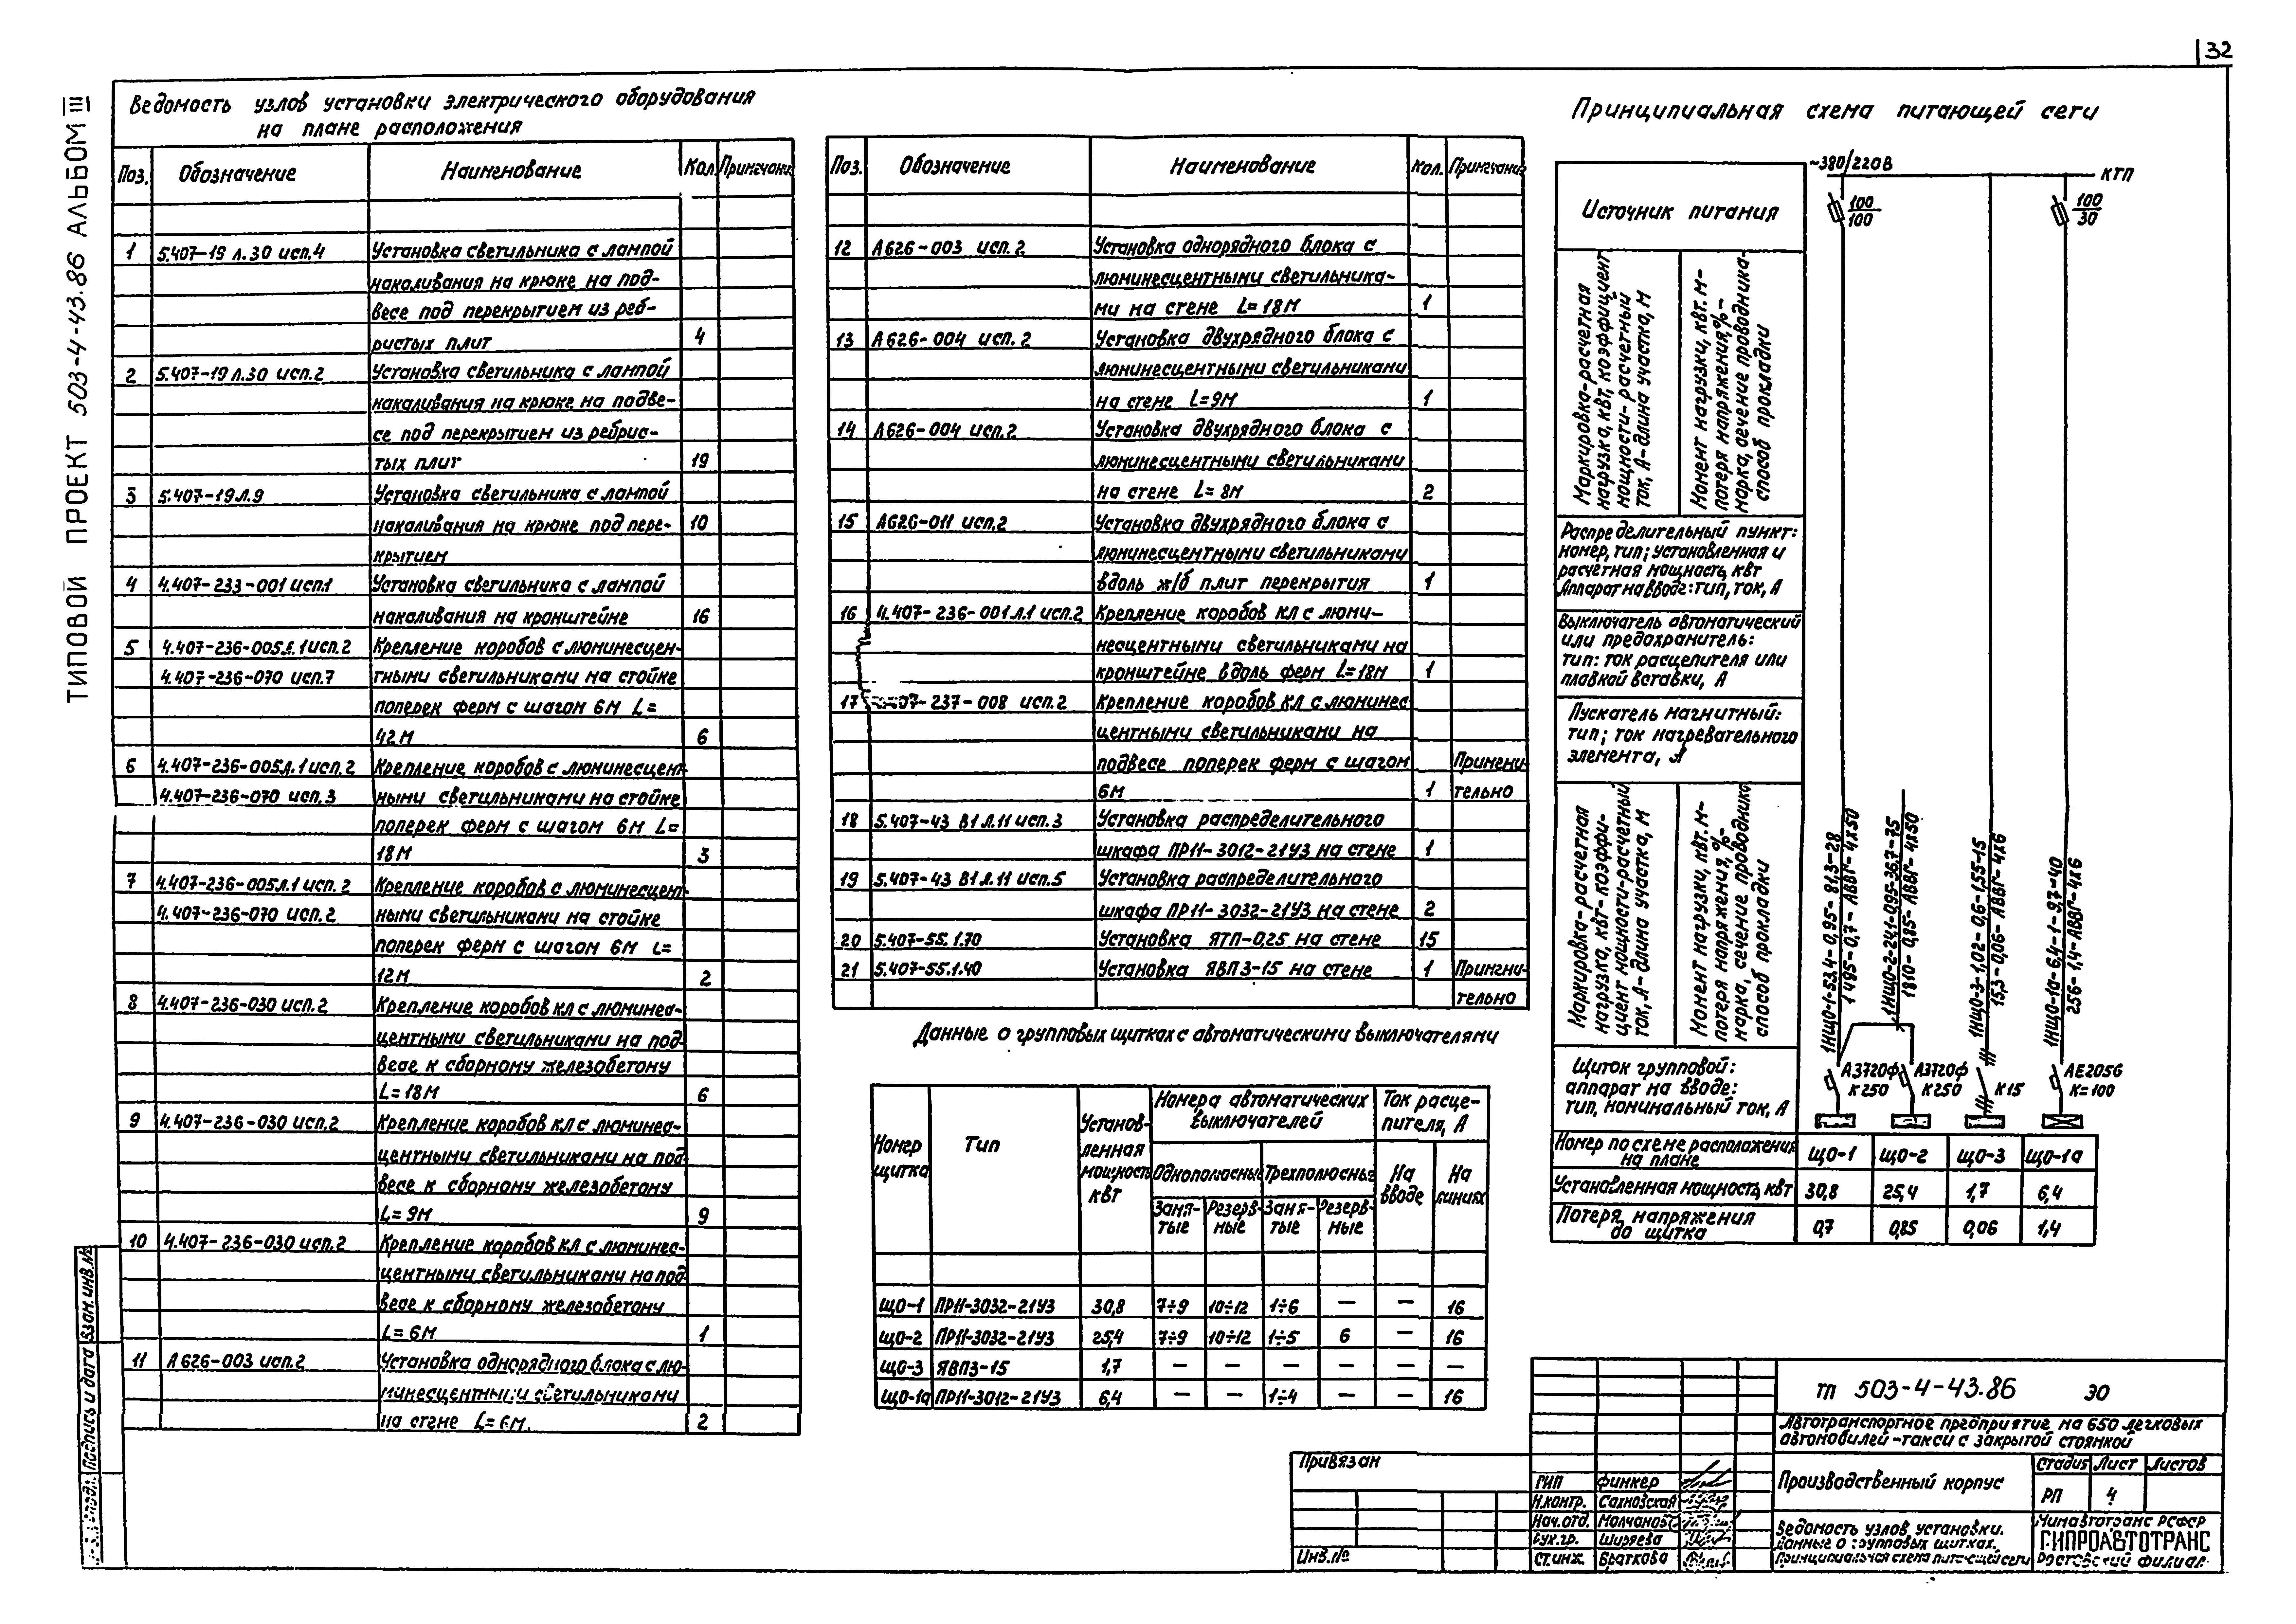 32
ТИПОВОЙ ПРОЕКТ 503-4-43.86 АЛЬБОМ III
Ведомость узлов установки электрического оборудования
на плане расположения
Поз. Обозначение Наименование Кол. Примечание
1 5.407-19 л.30 исп.4 Установка светильника с лампой
накаливания на крюке на под-
весе под перекрытием из реб-
ристых плит 4
2 5.407-19 л.30 исп.2 Установка светильника с лампой
накаливания на крюке на подве-
се под перекрытием из ребрис-
тых плит 19
3 5.407-19 л.9 Установка светильника с лампой
накаливания на крюке под пере- 10
крытием
4 4.407-233-001 исп.1 Установка светильника с лампой
накаливания на кронштейне 16
5 4.407-236-005л.1 исп.2 Крепление коробов с люминесцен-
4.407-236-070 исп.7 тными светильниками на стойке
поперек ферм с шагом 6м L=
42м 6
6 4.407-236-005л.1 исп.2 Крепление коробов с люминесцент-
4.407-236-070 исп.3 ными светильниками на стойке
поперек ферм с шагом 6м L=
18м 3
7 4.407-236-005л.1 исп.2 Крепление коробов с люминесцент-
4.407-236-070 исп.2 ными светильниками на стойке
поперек ферм с шагом 6м L=
12м 2
8 4.407-236-030 исп.2 Крепление коробов КЛ с люминес-
центными светильниками на под-
весе к сборному железобетону
L=18м 6
9 4.407-236-030 исп.2 Крепление коробов КЛ с люминес-
центными светильниками на под-
весе к сборному железобетону
L=9м 9
10 4.407-236-030 исп.2 Крепление коробов КЛ с люминес-
центными светильниками на под-
весе к сборному железобетону
L=6м 1
11 А626-003 исп.2 Установка однорядного блока с лю-
минесцентными светильниками
на стене L=6м. 2
Поз. Обозначение Наименование Кол. Примечание
12 А626-003 исп.2 Установка однорядного блока с
люминесцентными светильника-
ми на стене L=18м 1
13 А626-004 исп.2 Установка двухрядного блока с
люминесцентными светильниками
на стене L=9м 1
14 А626-004 исп.2 Установка двухрядного блока с
люминесцентными светильниками
на стене L=8м 2
15 А626-011 исп.2 Установка двухрядного блока с
люминесцентными светильниками
вдоль ж/б плит перекрытия 1
16 4.407-236-001л.1 исп.2 Крепление коробов КЛ с люми-
несцентными светильниками на
кронштейне вдоль ферм L=18м 1
17 07-237-008 исп.2 Крепление коробов КЛ с люминес-
центными светильниками на
подвесе поперек ферм с шагом Примени-
6м 1 тельно
18 5.407-43 В1 л.11 исп.3 Установка распределительного
шкафа ПР11-3012-21У3 на стене 1
19 5.407-43 В1 л.11 исп.5 Установка распределительного
шкафа ПР11-3032-21У3 на стене 2
20 5.407-55.1.70 Установка ЯТП-0,25 на стене 15
21 5.407-55.1.40 Установка ЯВП3-15 на стене 1 Примени-
тельно
Данные о групповых щитках с автоматическими выключателями
Номер щитка Тип Установ-ленная мощность кВт Номера автоматических выключателей Ток расце-пителя, А
Однополюсные Трехполюсные На вводе На линиях
Заня-тые Резерв-ные Заня-тые Резерв-ные
ЩО-1 ПР11-3032-21У3 30,8 7÷9 10÷12 1÷6 — — 16
ЩО-2 ПР11-3032-21У3 25,4 7÷9 10÷12 1÷5 6 — 16
ЩО-3 ЯВП3-15 1,7 — — — — — —
ЩО-1а ПР11-3012-21У3 6,4 — — 1÷4 — — 16
Принципиальная схема питающей сети
Источник питания
~380/220В
КТП
100/100
100/30
Маркировка-расчетная
нагрузка, кВт, коэффициент
мощности-расчетный
ток, А-длина участка, м
Момент нагрузки, кВт.м-
потеря напряжения,%-
марка, сечение проводника-
способ прокладки
Распределительный пункт:
номер, тип; установленная и
расчетная мощность, кВт
Аппарат на вводе: тип, ток, А
Выключатель автоматический
или предохранитель:
тип: ток расцепителя или
плавкой вставки, А
Пускатель магнитный:
тип; ток нагревательного
элемента, А
Маркировка-расчетная
нагрузка, кВт-коэффи-
циент мощности-расчетный
ток, А-длина участка, м
Момент нагрузки, кВт.м-
потеря напряжения,%-
марка, сечение проводника
способ прокладки
1НЩО-1-53,4-0,95-81,3-28
1495-0,7-АВВГ-4х50
1НЩО-2-24,1-0,95-36,7-75
1810-0,85-АВВГ-4х50
1НЩО-3-1,02-0,6-1,55-15
15,3-0,06-АВВГ-4х6
1НЩО-1а-6,4-1-9,7-40
256-1,4-АВВГ-4х6
Щиток групповой:
аппарат на вводе:
тип, номинальный ток, А
А3720Ф
К250
А3720Ф
К250
К15
АЕ2056
К=100
Номер по схеме расположения
на плане ЩО-1 ЩО-2 ЩО-3 ЩО-1а
Установленная мощность, кВт 30,8 25,4 1,7 6,4
Потеря напряжения
до щитка 0,7 0,85 0,06 1,4
тп 503-4-43.86 ЭО
Автотранспортное предприятие на 650 легковых
автомобилей-такси с закрытой стоянкой
Производственный корпус
Стадия Лист Листов
РП 4
Ведомость узлов установки.
Данные о групповых щитках.
Принципиальная схема питающей сети
Минавтотранс РСФСР
ГИПРОАВТОТРАНС
Ростовский филиал
Привязан
Инв.№
ГИП Финкер
Н.контр. Сахновская
Нач.отд. Молчанов
Рук.гр. Ширяева
Ст.инж. Браткова
Подпись и дата
Взам.инв.№